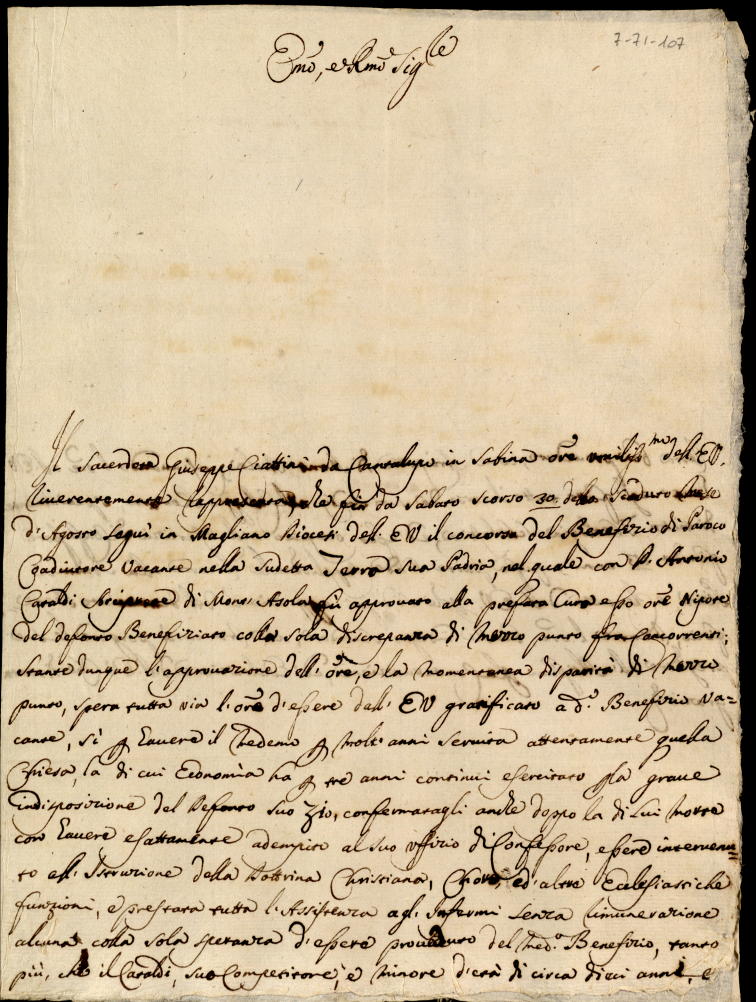 7-71-107
Emo, e Rmo Sigle
Il Sacerdote Giuseppe Ciattini da Cantalupo in Sabina ore umilissmo dell' EV.
riverentemente rappresenta, che fin da Sabato scorso 30. dello scaduto Mese
d'Agosto seguì in Magliano Diocesi dell' EV il concorso del Benefizio di Paroco
Coadiutore vacante nella sudetta Terra sua Padria, nel quale con D. Antonio
Caraldi Arciprete di Mons: Asola fù approvato alla prefata Cura esso ore Nipote
del defonto Benefiziato colla sola discrepanza di mezzo punto fra Concorrenti;
stante dunque l'approvazione dell' ore, e la momentanea disparità di mezzo
punto, spera tutta via l'ore d'essere dall' EV gratificato a do Benefizio va=
cante, sì p havere il medemo p molti anni servita attentamente quella
Chiesa, la di cui Economia ha p tre anni continui esercitato p la grave
indisposizione del Defonto suo Zio, confermatagli anche doppo la di Lui morte
con havere esattamente adempito al suo uffizio di Confessore, essere intervenu=
to all' Istruzione della Dottrina Christiana, Choro, ed' altre Ecclesiastiche
funzioni, e prestata tutta l'Assistenza agl' Infermi senza rimunerazione
alcuna colla sola speranza d'essere proveduto del medo Benefizio, tanto
più, che il Caraldi, suo Competitore, è minore d'età di circa dieci anni, e